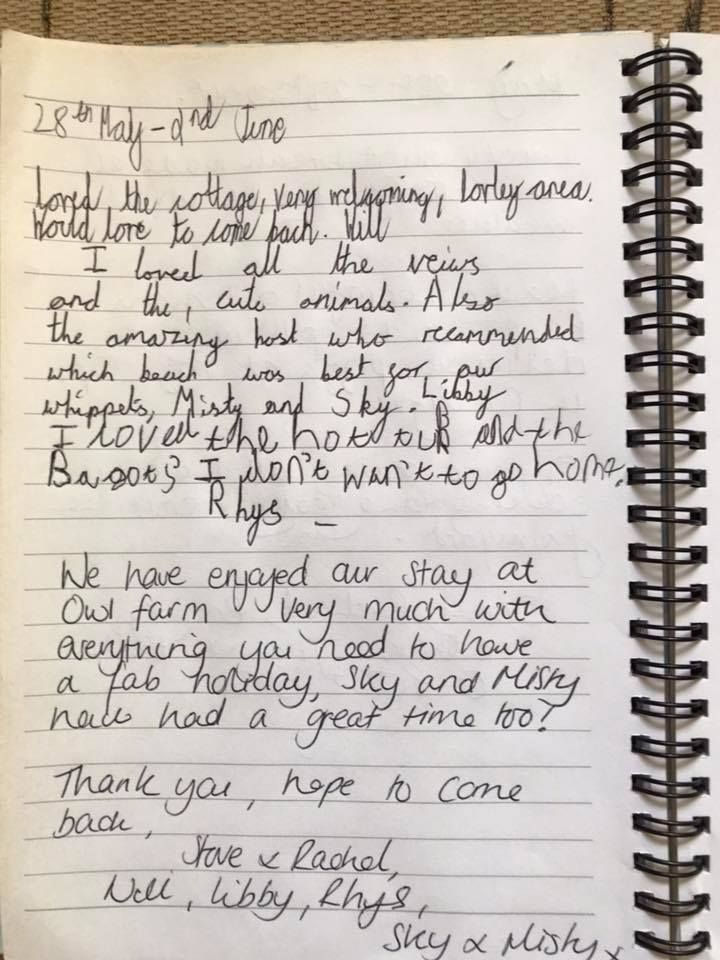 28th May - 2nd June
Loved the cottage, very welcoming, lovley area.
Would love to come back. Will
I loved all the veiws
and the, cute animals. Also
the amazing host who recommended
which beach was best for our
whippets, Misty and Sky. Libby
I loved the hot tub and the
I don't wan't to go home.
Rhys -
We have enjoyed our stay at
Owl farm very much with
everything you need to have
a fab holiday, Sky and Misty
have had a great time too!
Thank you, hope to come
back,
Steve & Rachel,
Will, Libby, Rhys,
Sky & Misty x